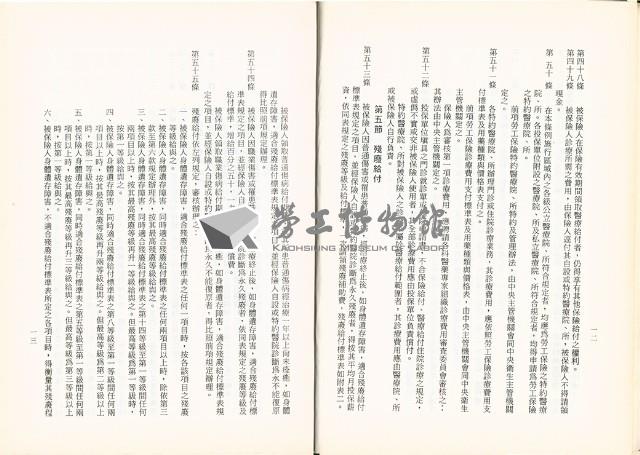 第四十八條
被保險人在保險有效期間領取醫療給付者，仍得享有其他保險給付之權利。
第四十九條
被保險人診療所需之費用，由保險人逕付其自設或特約醫療院、所，被保險人不得請領
現金。
第五十條
在本條例施行區域內之各級公立醫療院、所符合規定者，均應為勞工保險之特約醫療
院、所。各投保單位附設之醫療院、所及私立醫療院、所符合規定者，均得申請為勞工保險
之特約醫療院、所。
前項勞工保險特約醫療院、所特約及管理辦法，由中央主管機關會同中央衛生主管機關
定之。
第五十一條
各特約醫療院、所辦理門診或住院診療業務，其診療費用，應依照勞工保險診療費用支
付標準表及用藥種類與價格表支付之。
前項勞工保險診療費用支付標準表及用藥種類與價格表，由中央主管機關會同中央衛生
主管機關定之。
保險人為審核第一項診療費用，應聘請各科醫藥專家組織診療費用審查委員會審核之；
其辦法由中央主管機關定之。
第五十二條
投保單位填具之門診就診單或住院申請書，不合保險給付、醫療給付住院診療之規定，
或虛偽不實或交非被保險人使用者，其全部診療費用應由投保單位負責償付。
特約醫療院、所對被保險人之診療不屬於醫療給付範圍者，其診療費用應由醫療院、所
或被保險人自行負責。
第五節 殘廢給付
第五十三條
被保險人因普通傷害或罹患普通疾病，經治療終止後，如身體遺存障害，適合殘廢給付
標準表規定之項目，並經保險人自設或特約醫院診斷為永久殘廢者，得按其平均月投保薪
資，依同表規定之殘廢等級及給付標準，一次請領殘廢補助費。殘廢給付標準表如附表二。
一二
被保險人領取普通傷病給付期滿，或其所患普通傷病經治療一年以上尚未痊癒，如身體
遺存障害，適合殘廢給付標準表規定之項目，並經保險人自設或特約醫院診斷為永久不能復原者，
得比照前項規定辦理。
第五十四條
被保險人因職業傷害或罹患職業病，經治療終止後，如身體遺存障害，適合殘廢給付標
給付標準，增給百分之五十，一次請領殘廢補償費。
被保險人領取職業傷病給付期滿，尚未痊癒，如身體遺存障害，適合殘廢給付標準表規
定之項目，並經保險人自設或特約醫院診斷為永久不能復原者，得比照前項規定辦理。
第五十五條
殘廢給付依左列規定，審核辦理之：
一、被保險人身體遺存障害，適合殘廢給付標準表之任何一項目時，按各該項目之殘廢
等級給與之。
二、被保險人身體遺存障害，同時適合殘廢給付標準表之任何兩項目以上時，除依第三
款至第六款規定辦理外，按其最高殘廢等級給與之。
三、被保險人身體遺存障害，同時適合殘廢給付標準表之第十四等級至第一等級間任何
兩項目以上時，按其最高殘廢等級再升一等級給與之。但最高等級為第一等級時，
按第一等級給與之。
四、被保險人身體遺存障害，同時適合殘廢給付標準表之第八等級至第一等級間任何兩
項目以上時，按其最高殘廢等級再升二等級給與之。但最高等級為第二等級以上
時，按第一等級給與之。
五、被保險人身體遺存障害，同時適合殘廢給付標準表之第五等級至第一等級間任何兩
項目以上時，按其最高殘廢等級再升三等級給與之。但最高等級為第三等級以上
時，按第一等級給與之。
六、被保險人身體遺存障害，不適合殘廢給付標準表所定之各項目時，得衡量其殘廢程
一三
勞工博物館
KAOHSIUNG MUSEUM OF LABOR